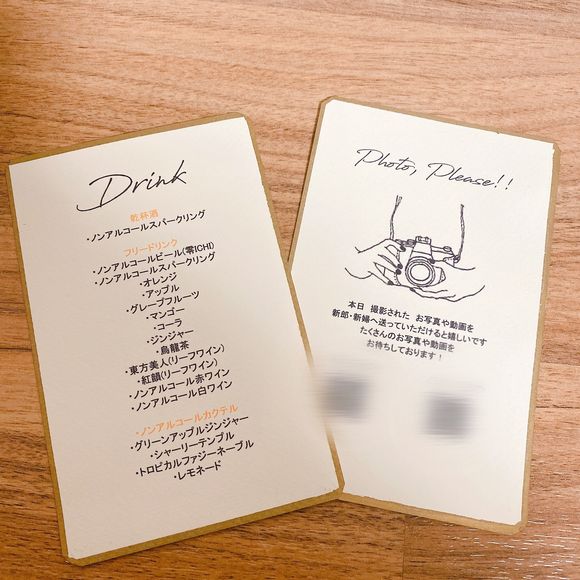 Drink
乾杯酒
・ノンアルコールスパークリング
フリードリンク
・ノンアルコールビール(零ICHI)
・ノンアルコールスパークリング
・オレンジ
・アップル
・グレープフルーツ
・マンゴー
・コーラ
・ジンジャー
・烏龍茶
・東方美人(リーフワイン)
・紅韻(リーフワイン)
・ノンアルコール赤ワイン
・ノンアルコール白ワイン
・ノンアルコールカクテル
・グリーンアップルジンジャー
・シャーリーテンプル
・トロピカルファジーネーブル
・レモネード
Photo, Please!!
本日 撮影された お写真や動画を
新郎・新婦へ送っていただけると嬉しいです
たくさんのお写真や動画を
お待ちしております！